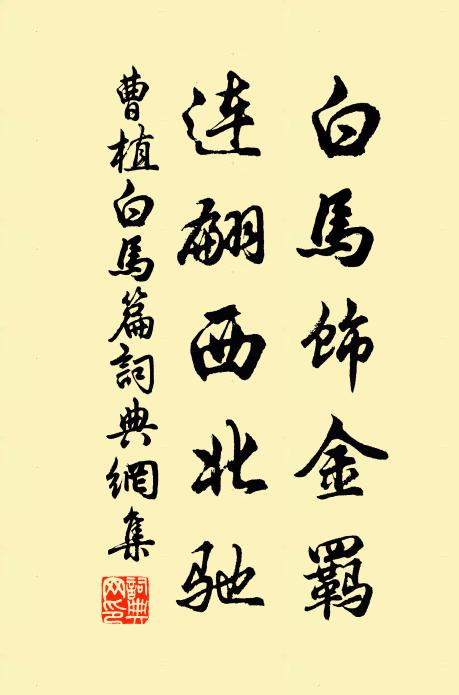 白馬飾金羈
连翩西北驰
曹植白馬篇詞典網集
詞典網印